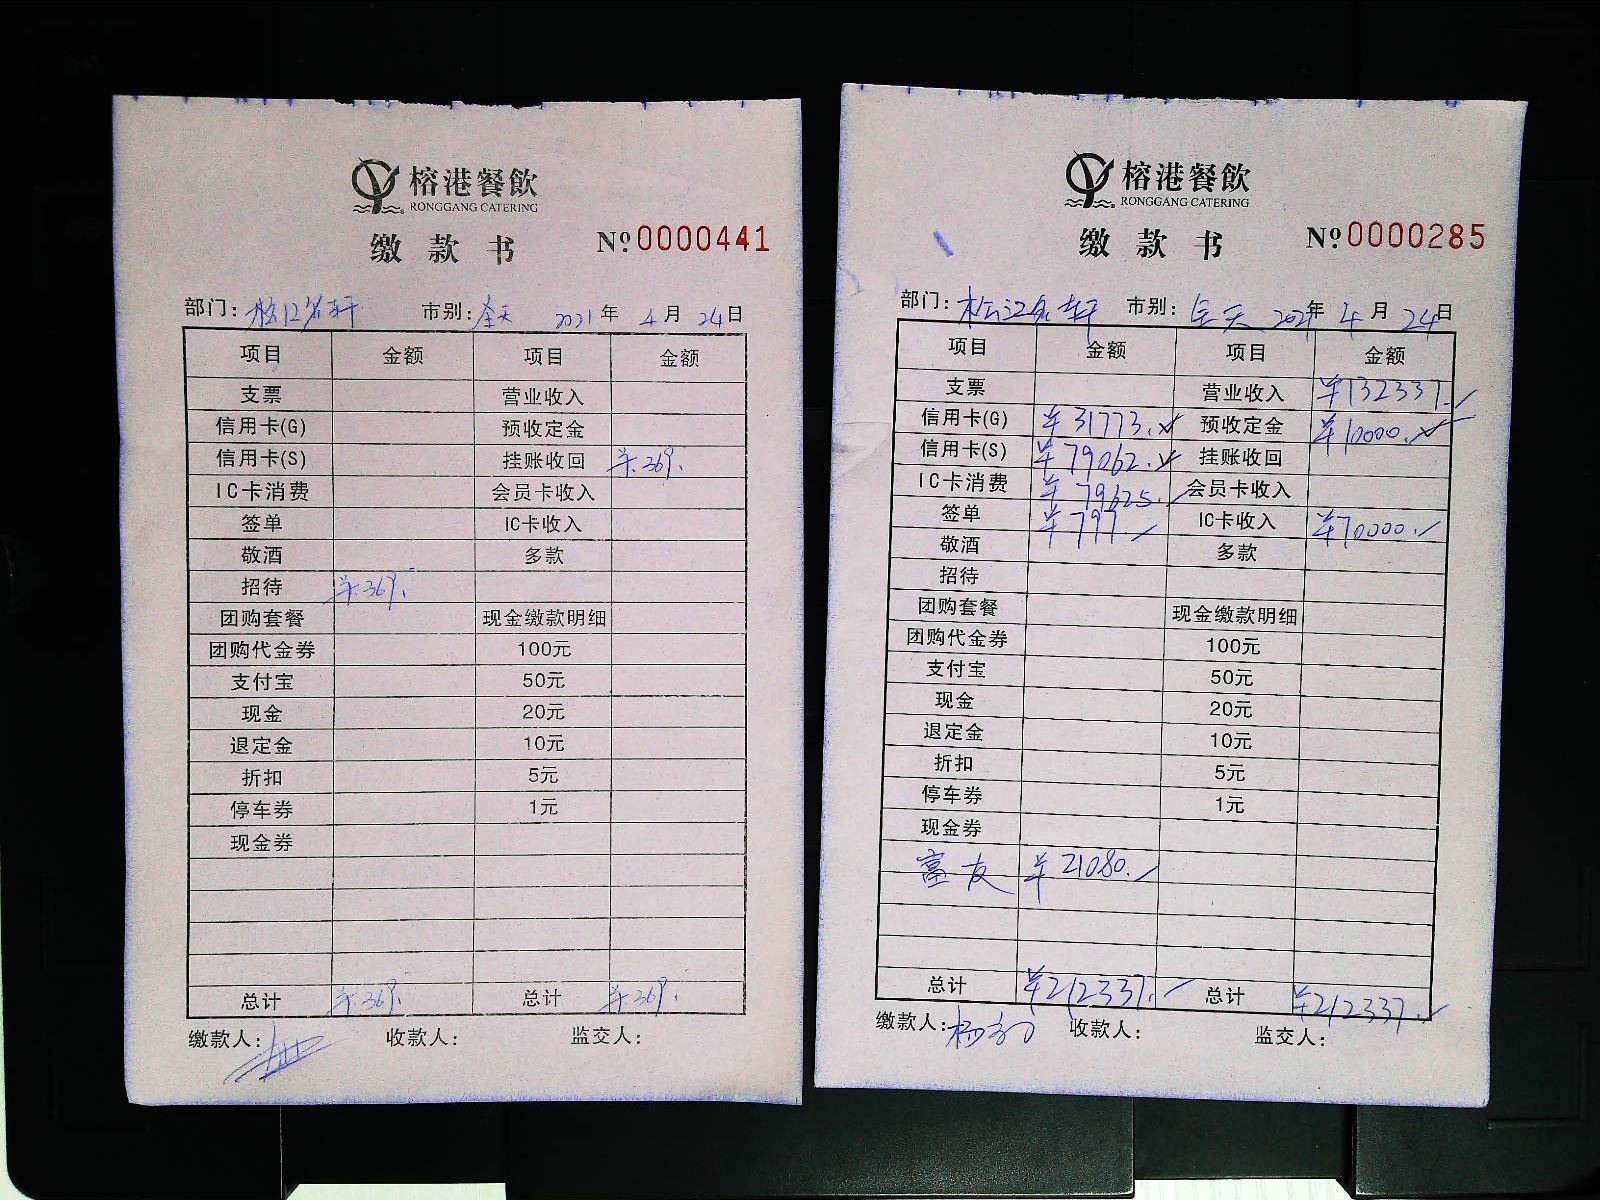 榕港餐飲
RONGGANG CATERING
缴款书 Nº 0000441
部门: 松江名轩 市别: 全天 2021年 4月 24日
项目 金额 项目 金额
支票 营业收入
信用卡(G) 预收定金
信用卡(S) 挂账收回 ¥369.
IC卡消费 会员卡收入
签单 IC卡收入
敬酒 多款
招待 ¥369.
团购套餐 现金缴款明细
团购代金券 100元
支付宝 50元
现金 20元
退定金 10元
折扣 5元
停车券 1元
现金券
总计 ¥369. 总计 ¥369.
缴款人: 收款人: 监交人:
榕港餐飲
RONGGANG CATERING
缴款书 Nº 0000285
部门: 松江名轩 市别: 全天 2021年 4月 24日
项目 金额 项目 金额
支票 营业收入 ¥132337.
信用卡(G) ¥31773. 预收定金 ¥10000.
信用卡(S) ¥79062. 挂账收回
IC卡消费 ¥79625. 会员卡收入
签单 ¥797. IC卡收入 ¥70000.
敬酒 多款
招待
团购套餐 现金缴款明细
团购代金券 100元
支付宝 50元
现金 20元
退定金 10元
折扣 5元
停车券 1元
现金券
富友 ¥21080.
总计 ¥212337. 总计 ¥212337.
缴款人: 收款人: 监交人: